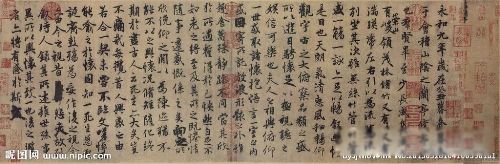 永和九年歲在癸丑暮春之初會
于會稽山陰之蘭亭脩稧事
也群賢畢至少長咸集此地
有崇山峻領茂林脩竹又有清流激
湍暎帶左右引以為流觴曲水
列坐其次雖無絲竹管弦之
盛一觴一詠亦足以暢敘幽情
是日也天朗氣清惠風和暢仰
觀宇宙之大俯察品類之盛
所以遊目騁懷足以極視聽之
娛信可樂也夫人之相與俯仰
一世或取諸懷抱悟言一室之內
或因寄所託放浪形骸之外雖
趣舍萬殊靜躁不同當其欣
於所遇蹔得於己怏然自足不
知老之將至及其所之既惓情
隨事遷感慨係之矣向之所
欣俛仰之閒以為陳跡猶不
能不以之興懷況脩短隨化終
期於盡古人云死生亦大矣豈
不痛哉每攬昔人興感之由
若合一契未嘗不臨文嗟悼不
能喻之於懷固知一死生為虛
誕齊彭殤為妄作後之視今
亦由今之視昔悲夫故列
敘時人錄其所述雖世殊事
異所以興懷其致一也後之攬
者亦將有感於斯文
昵图网 www.nipic.com